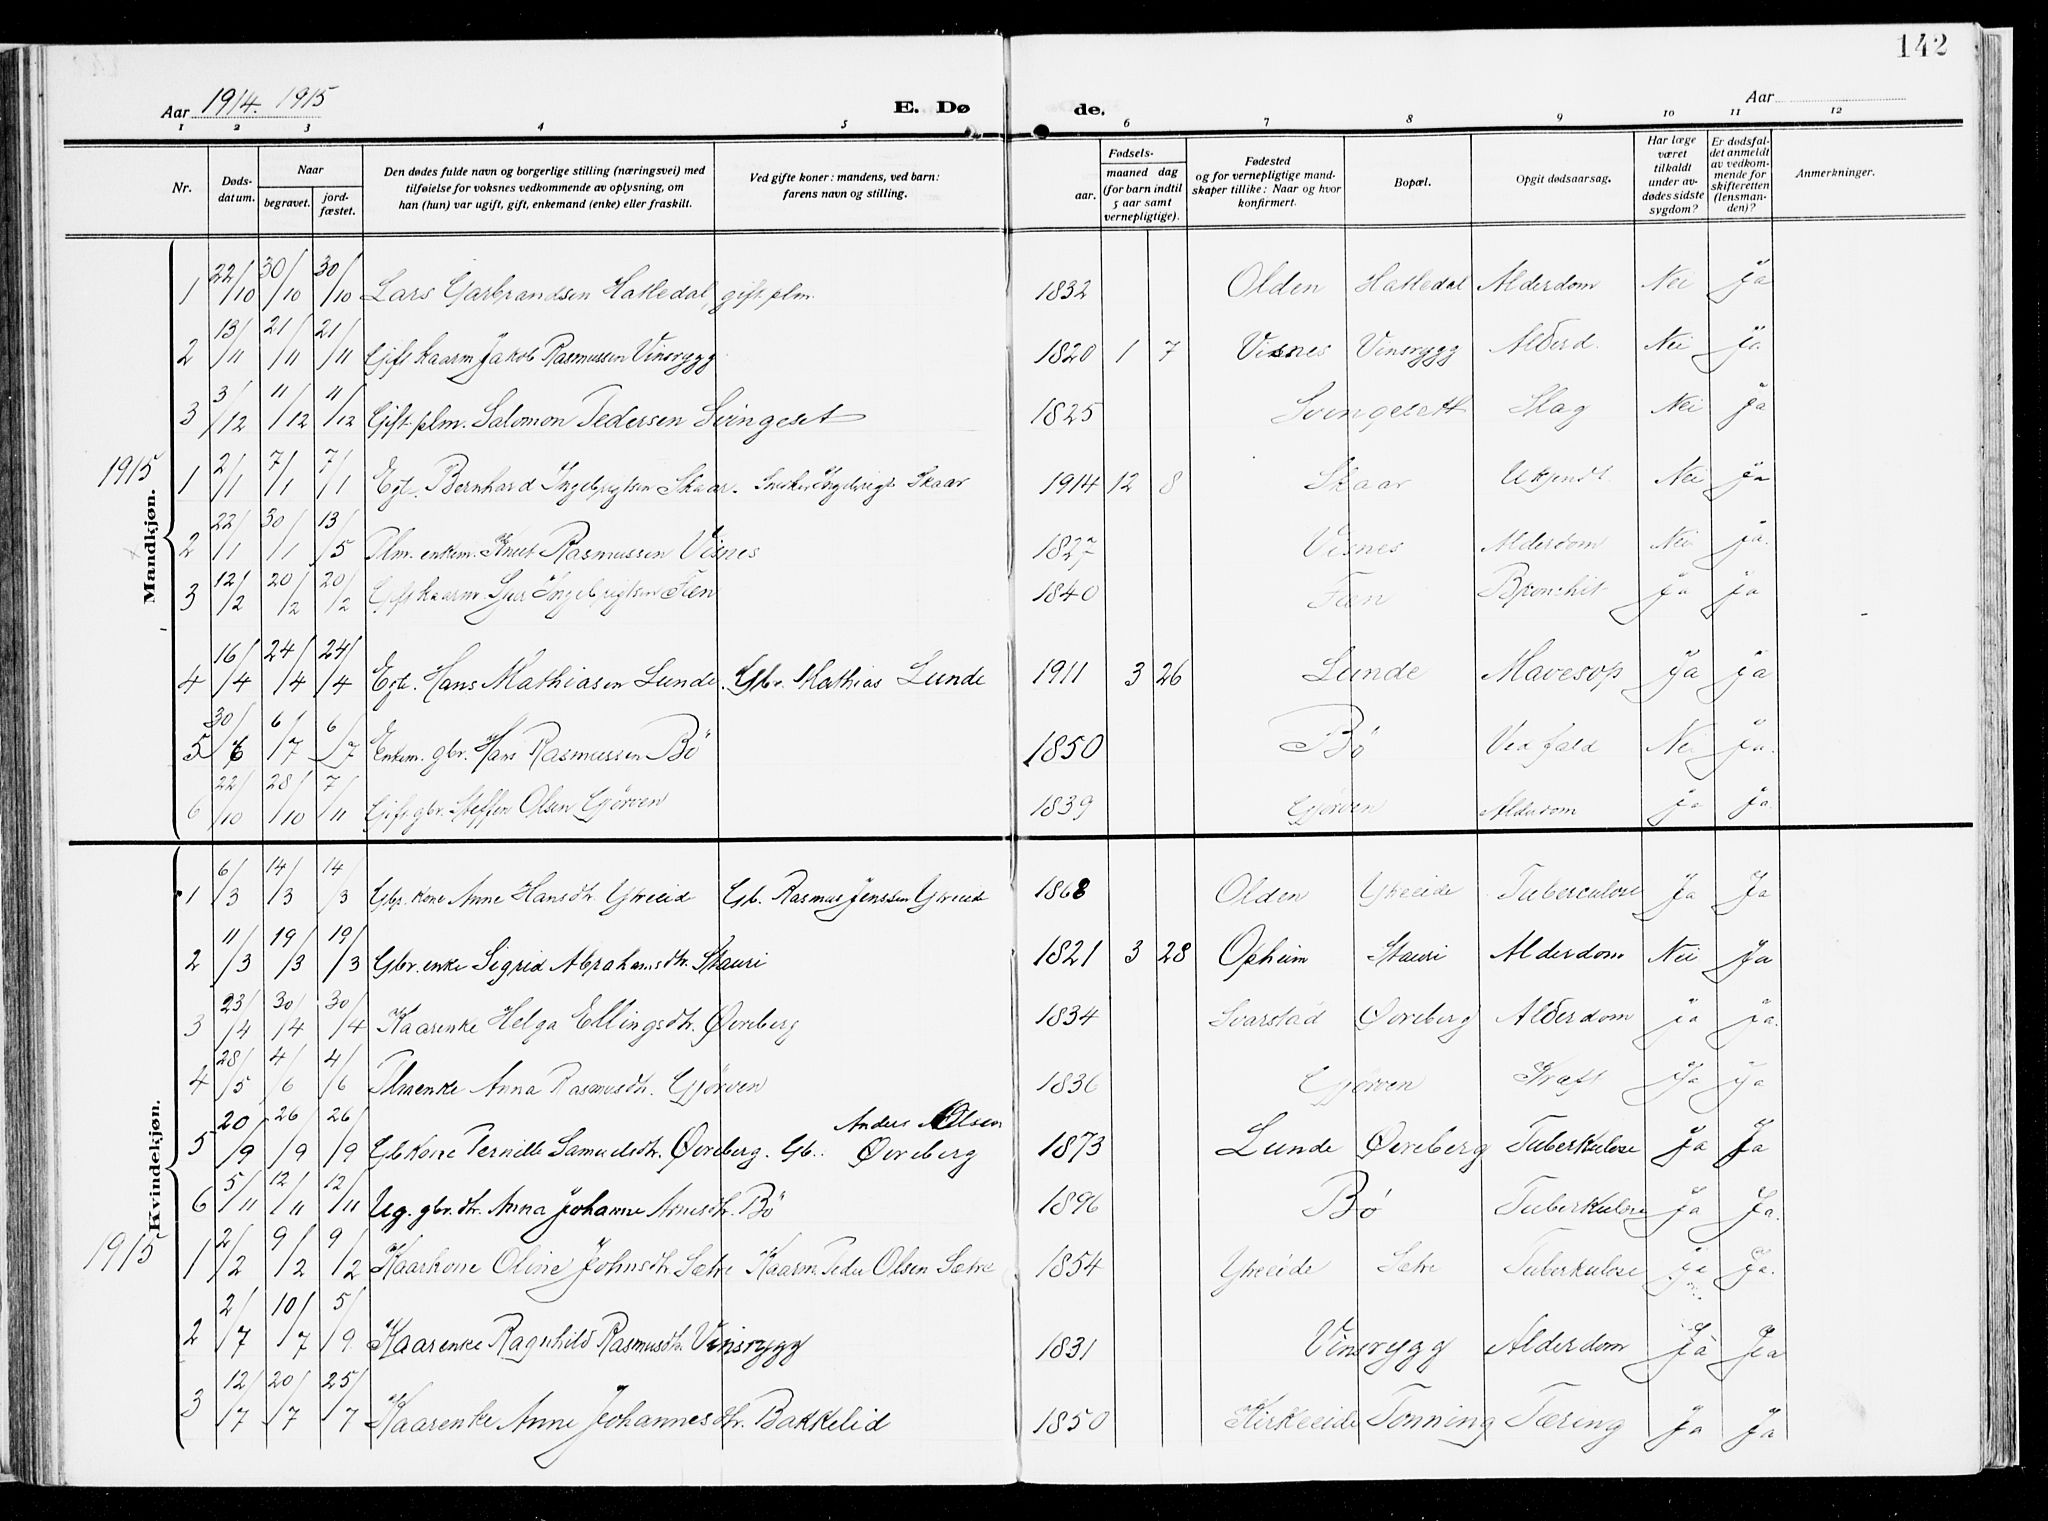 142
Aar 1914. 1915 E. Dø de. Aar
1 2 3 4 5 6 7 8 9 10 11 12
Nr. Døds-datum. Naar begravet. jord-fæstet. Den dødes fulde navn og borgerlige stilling (næringsvei) med tilføielse for voksnes vedkommende av oplysning, om han (hun) var ugift, gift, enkemand (enke) eller fraskilt. Ved gifte koner: mandens, ved barn: farens navn og stilling. Fødsels- aar. maaned dag (for barn indtil 5 aar samt vernepligtige). Fødested og for vernepligtige mandskaper tillike: Naar og hvor konfirmert. Bopæl. Opgit dødsaarsag. Har læge været tilkaldt under avdødes sidste sygdom? Er dødsfaldet anmeldt av vedkommende for skifteretten (lensmanden)? Anmerkninger.
Mandkjøn.
1 22/10 30/10 30/10 Lars Garbrandsen Hatledal, gift plm. 1832 Olden Hatledal Alderdom Nei Ja
2 13/11 21/11 21/11 Gift kaarm Jakob Rasmussen Vinsrygg 1820 1 7 Visnes Vinsrygg Alderd. Nei Ja
3 3/12 11/12 11/12 Gift plm. Salomon Pedersen Svingeset 1825 Svingesett Slag Nei Ja
1915
1 2/1 7/1 7/1 Egte. Bernhard Ingebrigtsen Skaar. Snekker Ingebrigt Skaar 1914 12 8 Skaar Ukjendt Nei Ja
2 22/1 30/1 13/5 Plm. enkem. Knut Rasmussen Visnes 1827 Visnes Alderdom Nei Ja.
3 12/2 20/2 20/2 Gift kaarm. Sjur Ingebrigtsen Fæn 1840 Fæn Bronchit Ja Ja
4 16/4 24/4 24/4 Egte. Hans Mathiasen Lunde. Gbr. Mathias Lunde 1911 3 26 Lunde Mavesop Ja Ja
5 30/6 6/7 6/7 Enkem. gbr. Hans Rasmussen Bö 1850 Bö Vedfald Nei Ja.
6 22/10 28/10 7/11 Gift gbr. Steffen Olsen Gjørven 1839 Gjørven Alderdom Ja Ja.
Kvindekjøn.
1 6/3 14/3 14/3 Gbr. kone Anne Hansdtr. Ytreeid Gb. Rasmus Jenssen Ytreeid 1868 Olden Ytreeide Tuberculose Ja Ja
2 11/3 19/3 19/3 Gbr. enke Sigrid Abrahamsdtr. Stauri 1821 3 28 Opheim Stauri Alderdom Nei Ja
3 23/4 30/4 30/4 Kaarenke Helga Ellingsdtr. Øvreberg 1834 Svarstad Øvreberg Alderdom Ja Ja.
4 28/5 4/6 4/6 Plmenke Anna Rasmusdtr. Gjørven 1836 Gjørven Kræft Ja Ja
5 20/9 26/9 26/9 Gbkone Pernille Samuelsdtr. Øvreberg. Gb. Anders Olsen Øvreberg 1873 Lunde Øvreberg Tuberkulose Ja Ja
6 5/11 12/11 12/11 Ug. gbr. dtr. Anna Johanne Arnesdtr. Bö 1896 Bö Tuberkulose Ja Ja.
1915
1 2/2 9/2 9/2 Kaarkone Oline Johnsdtr. Sætre Kaarm. Peder Olsen Sætre 1854 Ytreeide Sætre Tuberkulose Ja Ja.
2 2/7 10/7 5/9 Kaarenke Ragnhild Rasmusdtr. Vinsrygg 1831 Vinsrygg Alderdom Ja Ja
3 12/7 20/7 25/7 Kaarenke Anne Johannesdtr. Bakkelid 1850 Kirkeeide Tonning Tæring Ja Ja